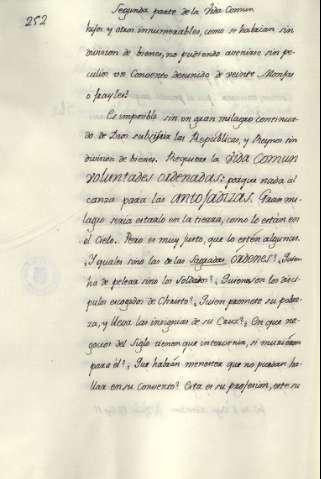 252
Segunda parte de la Vida Comun
hijos, y otros innumerables, como se habrían sin
division de bienes, no pudiendo avenirse sin pe-
culios un Convento decenido de veinte Monjas
o frayles?
Es imposible sin un gran milagro continua-
do de Dios subsistir las Repúblicas, y Reynos sin
division de bienes. Requiere la Vida Comun
voluntades ordenadas: porque nada al-
canza para las antojadizas. Gran mi-
lagro seria estarlo en la tierra, como lo están en
el Cielo. Pero es muy justo, que lo estén algunas.
Y quales sino las de las Sagradas Órdenes? Quien
ha de pelear sino los Soldados? Quienes son los disci-
pulos escogidos de Christo? Quien promete su pobre-
za, y lleva las insignias de su Cruz? En que ne-
gocios del Siglo tienen que intervenir, si murieron
para él? Que habrán menester que no puedan ha-
llar en su Convento? Esta es su profesion, este su